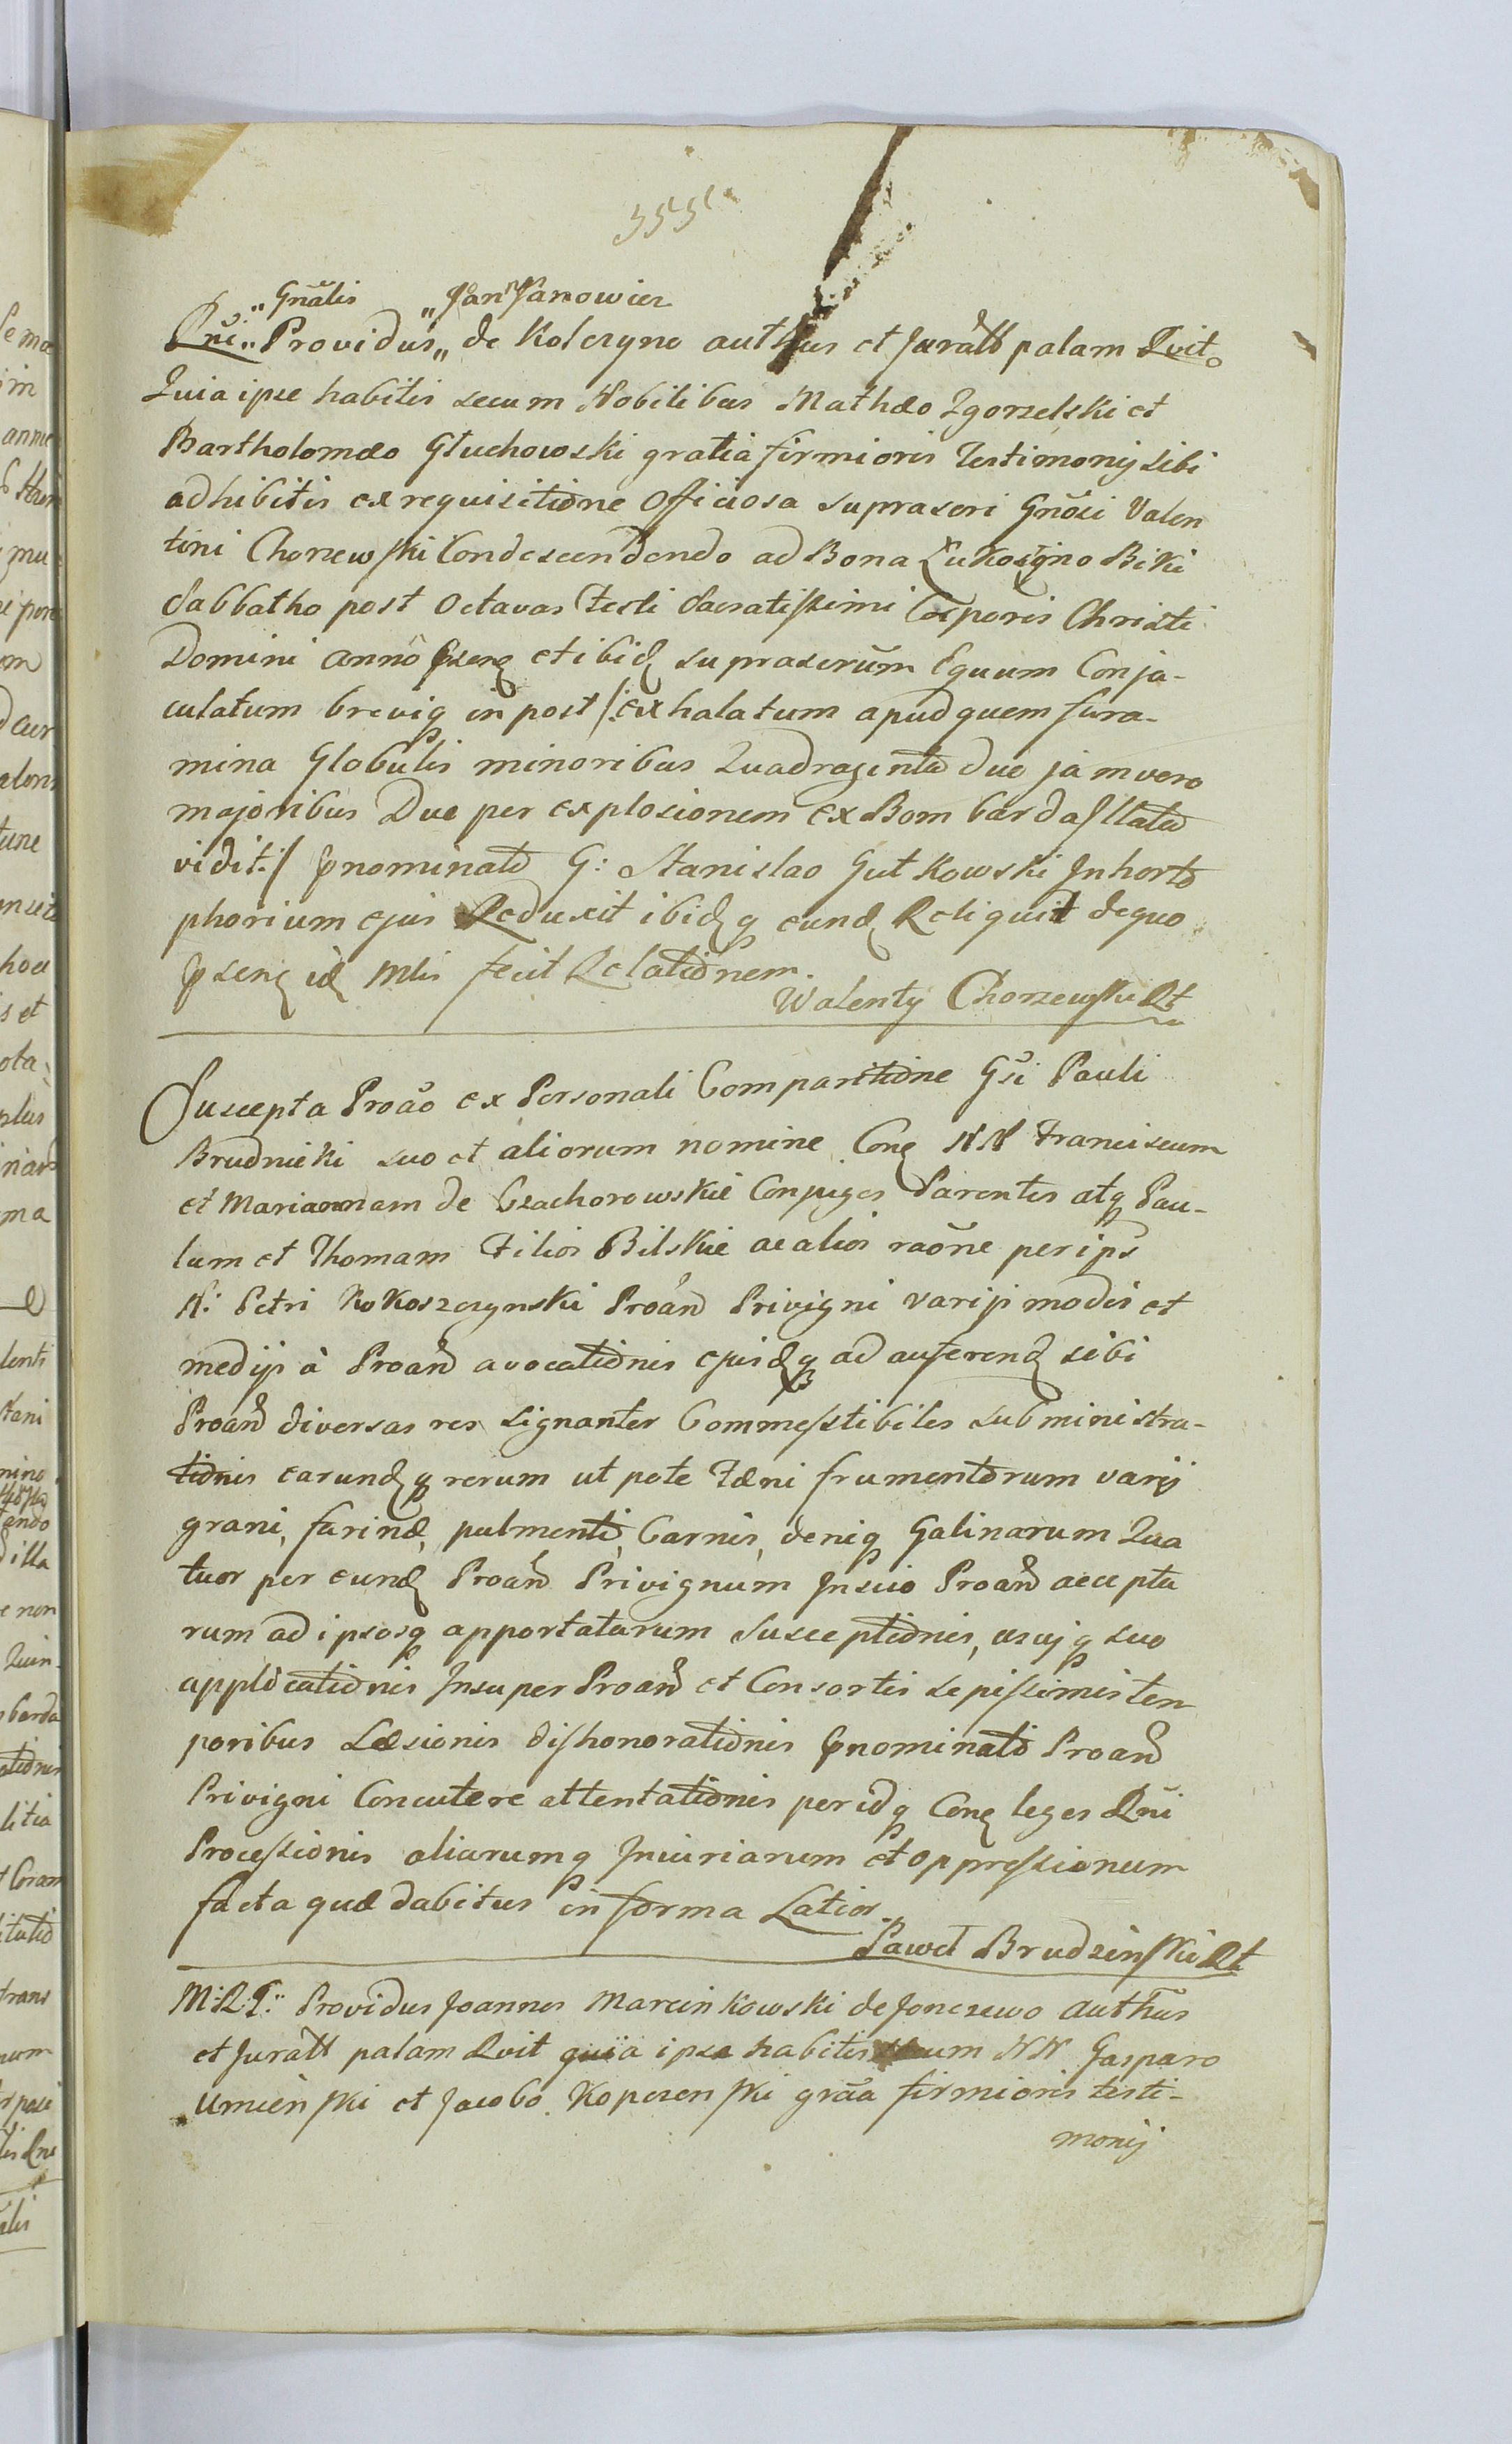 Gnãlis Jan Janowicz
Rñi Providus de Kolczyno authus et Juratt palam Rvit
Quia ipse habitis secum Nobilibus Mathæo Zgorzelski et
Bartholomæo Głuchowski gratia firmioris Testimonij sibi
adhibitis ex requisitione Officiosa suprascri Gnosi Valen
tini Chorzewski Condescendendo ad Bona Łukoszyno Biki
Sabbatho post Octavas Festi Sacratissimi Corporis Christi
Domini anno psenz et ibid suprascrũm Equum Conja-
culatum brevi q in post /: exhalatum apud quem fora-
mina Globulis minoribus Quadraginta duo jam vero
majoribus Duo per explosionem ex Bombarda illata
vidit :/ pnominato G: Stanislao Gutkowski Jnhorto
phorium ejus Reduxit ibid q eund Reliquit de quo
psenz id Mlis fecit Relationem.
Walenty Chorzewski Rt
Suscepta Proão ex Personali Comparitione Gsi Pauli
Brudnicki suo et aliorum nomine Conz NN Franciscum
et Mariannam de Czachorowskie Conjuges Parentes atq Pau-
lum et Thomam Filios Bilskie ac alios raõne per ips
N: Petri Kokoszczynski Proan Privigni varijs modis et
medijs à Proan avocationis ejusd q ad auferend sibi
Proan diversas res signanter Commestibiles subministra-
tionis earund q rerum ut pote Fæni frumentorum varij
grani, farinæ, pulmenti, Carnis, deniq Galinarum Qua
tuor per eund Proan Privignum Jnscio Proan accepta
rum ad ipsosq apportatarum Susceptionis, usuj q suo
applicationis Jnsuper Proan et Consortis sepissimis tem
poribus Læsionis dishonorationis pnominati Proan
Privigni Concutere attentationis per id q Conz leges Rñi
Processionis aliarumq Jniuriarum et oppressionum
facta quæ dabitur in forma Latior.
Paweł Brudzinski Rt
M:R:G: Providus Joannes Marcinkowski de Jonczewo authus
et Juratt palam Rvit quia ipse habitis secum NN Gasparo
Umienski et Jacobo Kopczenski grãa firmioris testi-
monij